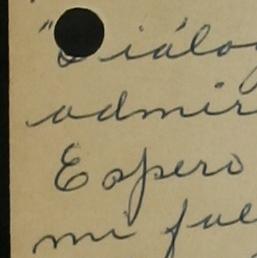 "Diálog
admir
Espero
mi